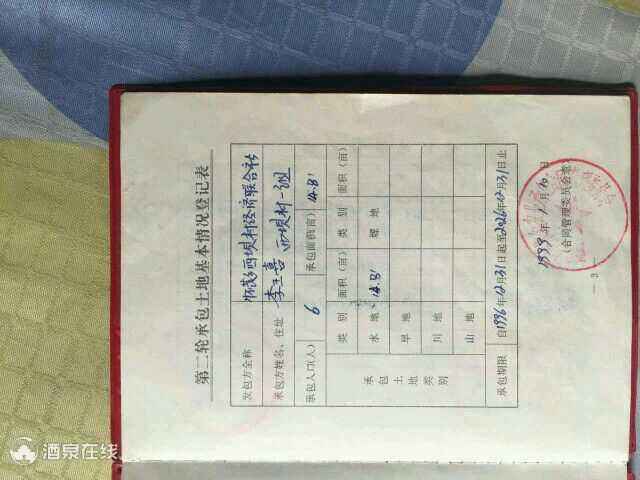 第二轮承包土地基本情况登记表
发包方全称 西坝村经济联合社
承包方姓名、住址 李玉喜 西坝村一组
承包人口(人) 6 承包面积(亩) 14.81
承包土地类别
类别 面积(亩) 类别 面积(亩)
水地 14.81 地
旱地
川地
山地
承包期限 自1996年12月31日起至2026年12月31日止
1999年1月10日
(合同管理委员会章)
— 3 —
酒泉在线